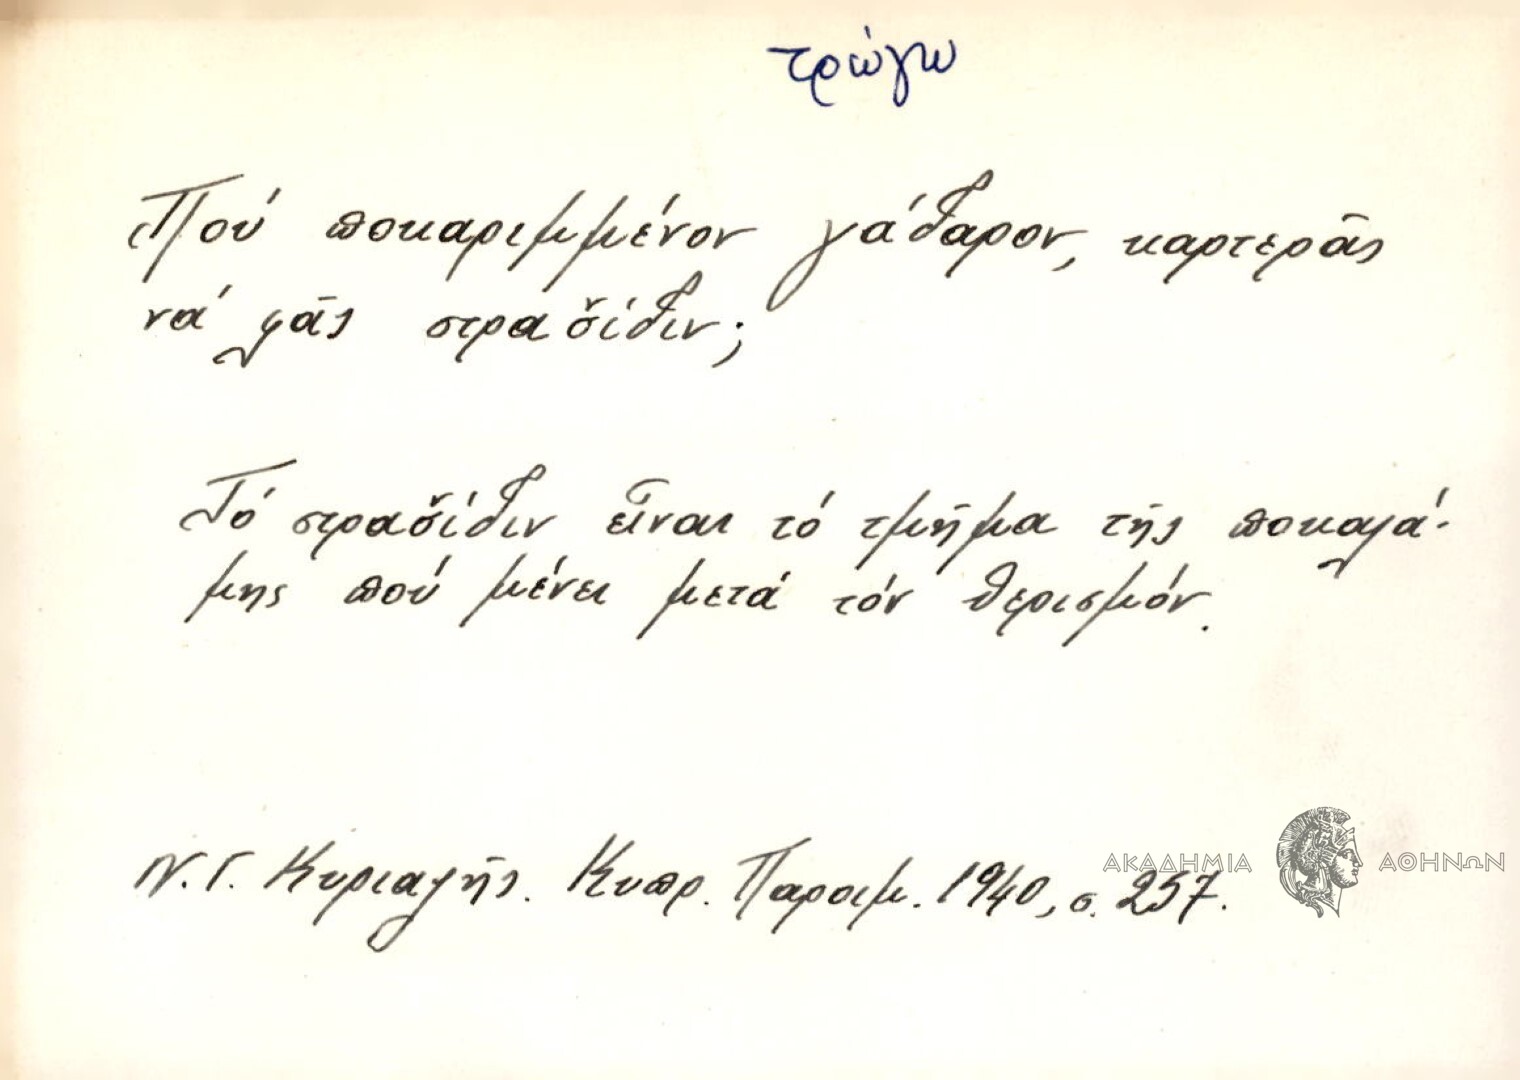 τρώγω
Πού ποκαριμμένον γάδαρον, καρτερᾶς
νά φᾶς στρασ̌ίδιν;
Τό στρασ̌ίδιν εἶναι τό τμῆμα τῆς ποκαλά-
μης πού μένει μετά τόν θερισμόν.
Ν. Γ. Κυριαζῆς. Κυπρ. Παροιμ. 1940, σ. 257.
ΑΚΑΔΗΜΙΑ ΑΘΗΝΩΝ